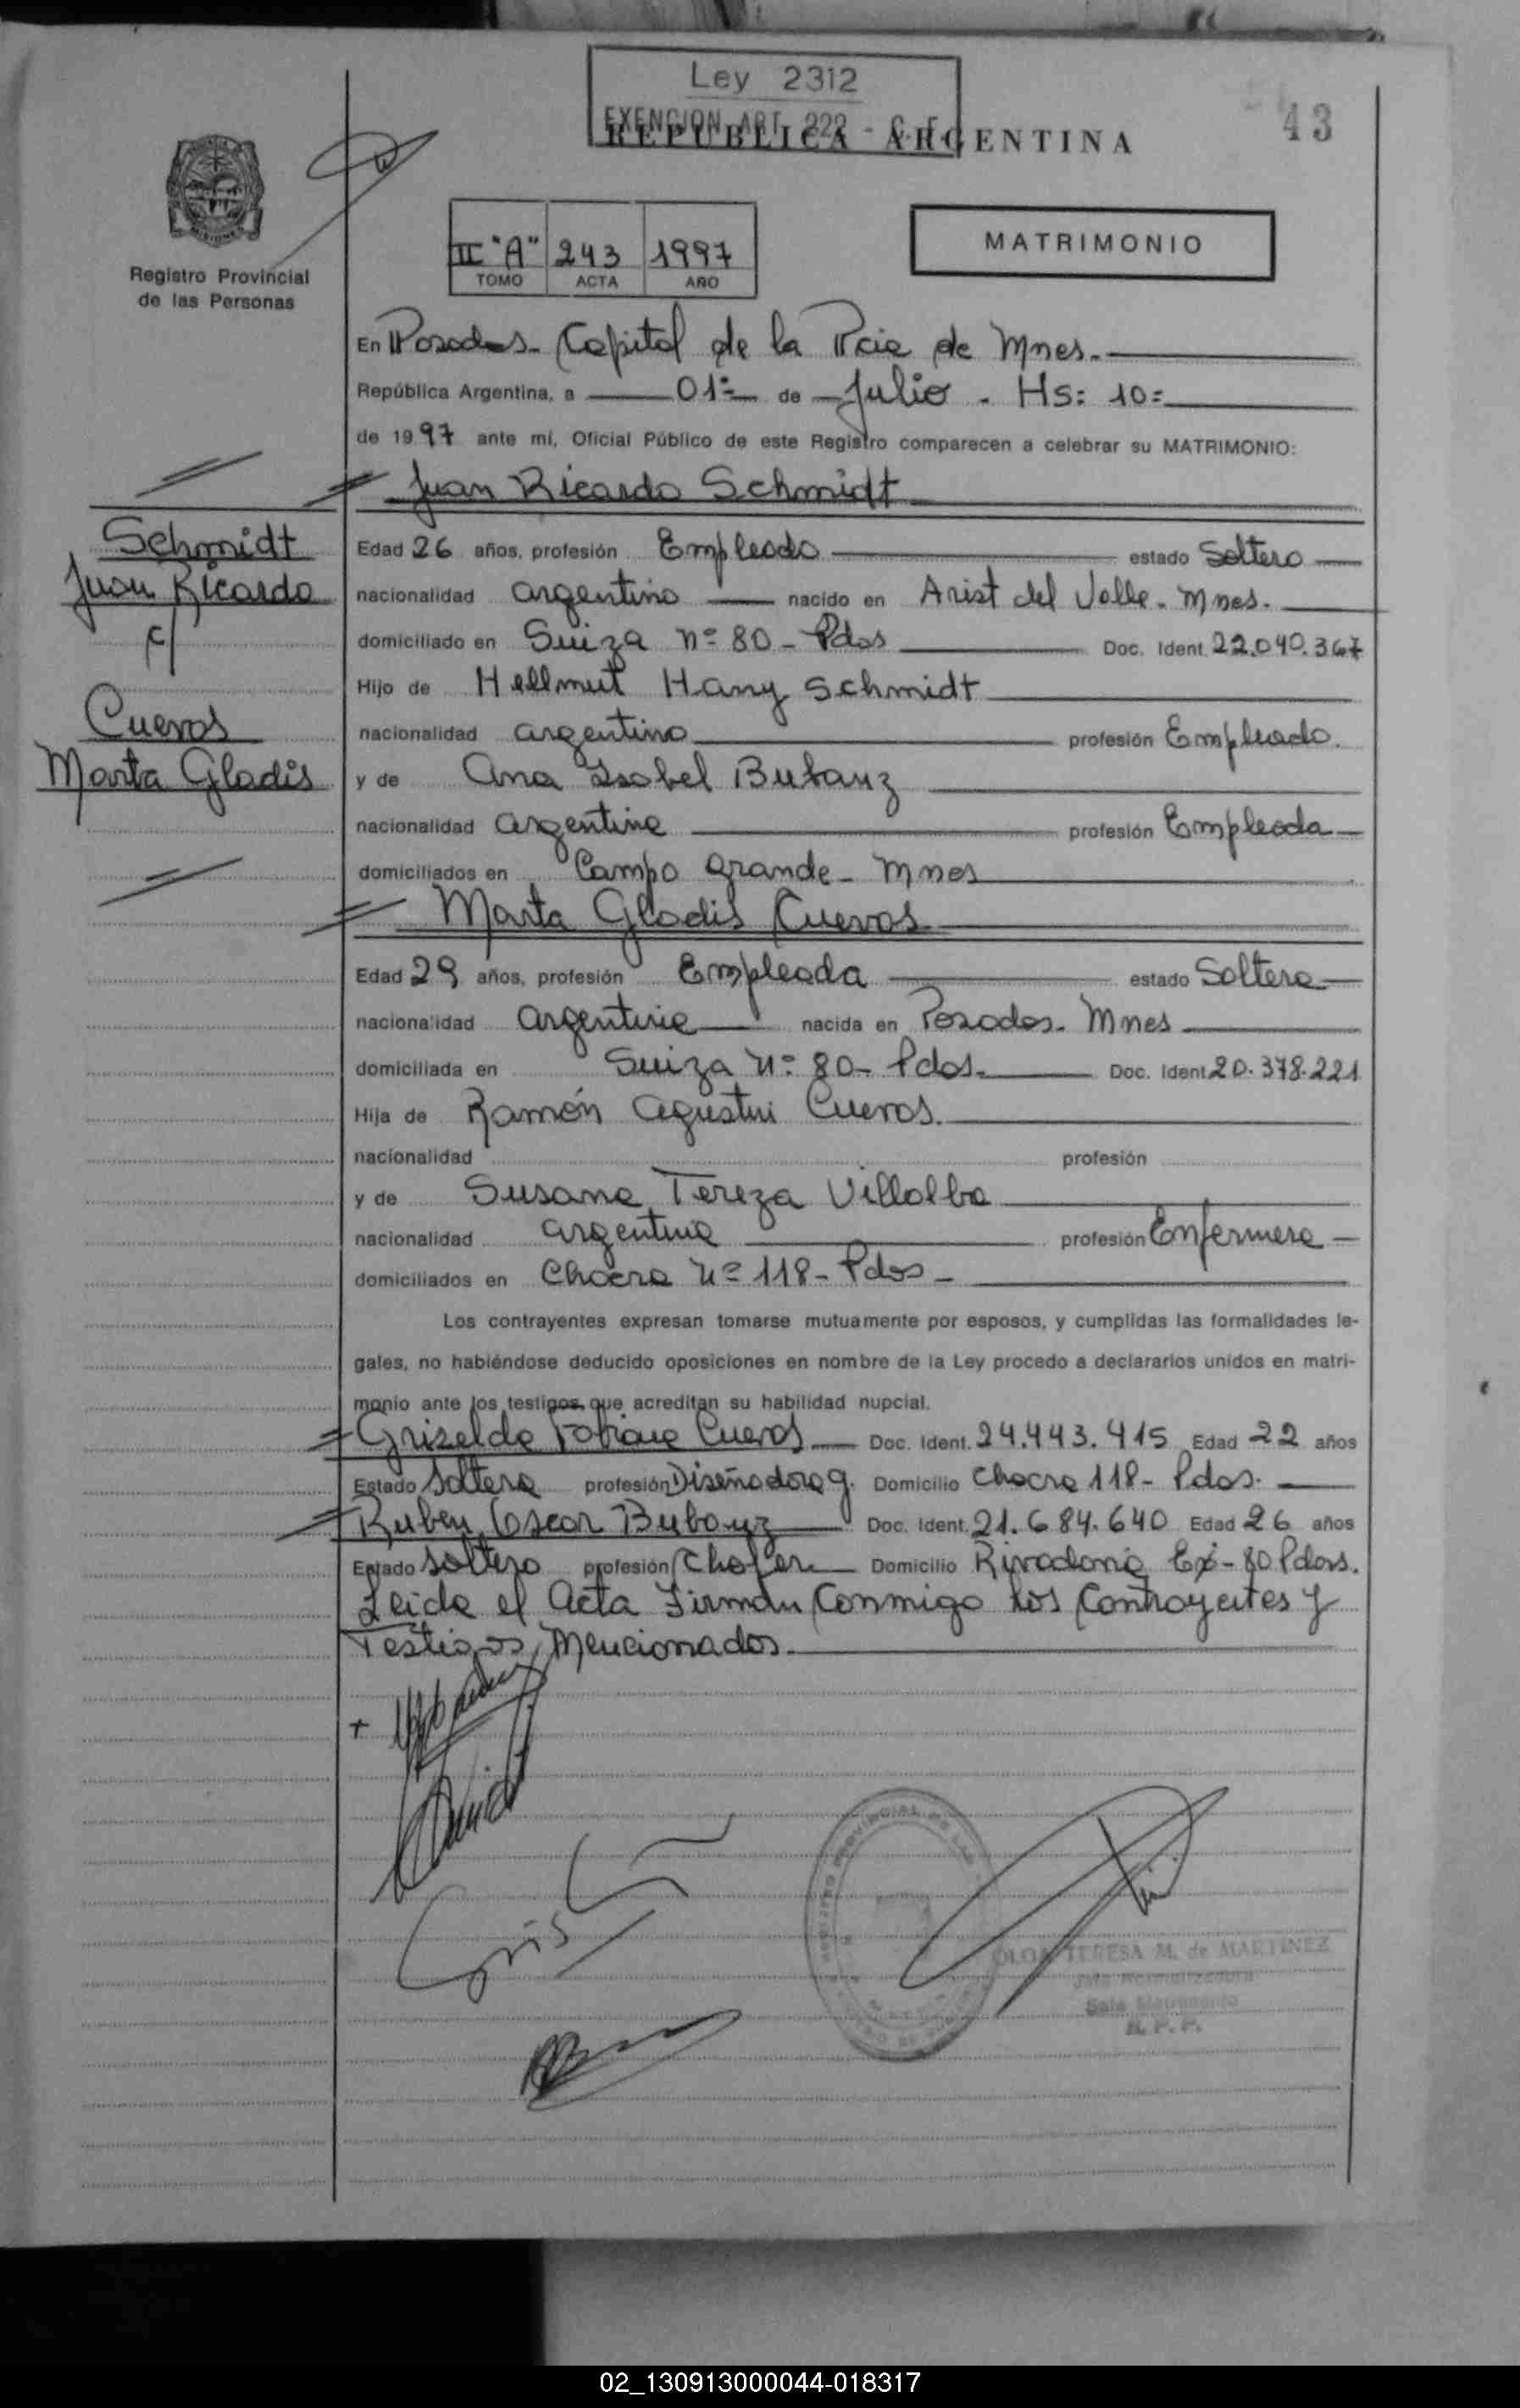 Ley 2312
EXENCION ART. 222 - C. F.
REPUBLICA ARGENTINA
43
Registro Provincial
de las Personas
II "A" 243 1997
TOMO ACTA AÑO
MATRIMONIO
En Posadas - Capital de la Pcia de Mnes.
República Argentina, a 01= de Julio - Hs: 10=
de 1997 ante mí, Oficial Público de este Registro comparecen a celebrar su MATRIMONIO:
Juan Ricardo Schmidt
Schmidt
Juan Ricardo
c/
Cuevas
Marta Gladis
Edad 26 años, profesión Empleado estado Soltero
nacionalidad argentino nacido en Arist del Valle - Mnes.
domiciliado en Suiza nº 80 - Pdas Doc. Ident. 22.040.367
Hijo de Hellmut Hany Schmidt
nacionalidad argentino profesión Empleado.
y de Ana Isabel
nacionalidad argentina profesión Empleada
domiciliados en Campo Grande - Mnes
Marta Gladis Cuevas
Edad 29 años, profesión Empleada estado Soltera
nacionalidad argentina nacida en Posadas - Mnes
domiciliada en Suiza Nº 80 - Pdas. Doc. Ident 20.378.221
Hija de Ramón Agustin Cuevas.
nacionalidad profesión
y de Susana Tereza Villalba
nacionalidad argentina profesión Enfermera
domiciliados en Chacra Nº 118 - Pdas -
Los contrayentes expresan tomarse mutuamente por esposos, y cumplidas las formalidades le-
gales, no habiéndose deducido oposiciones en nombre de la Ley procedo a declararlos unidos en matri-
monio ante los testigos que acreditan su habilidad nupcial.
Grizelda Fabiana Cuevas Doc. Ident. 24.443.415 Edad 22 años
Estado Soltera profesión Diseñadora g. Domicilio Chacra 118 - Pdas.
Ruben Oscar Doc. Ident. 21.684.640 Edad 26 años
Estado soltero profesión Chofer Domicilio 80 Pdas.
Leida el Acta Firman Conmigo los Contrayentes y
Testigos Mencionados.
OLGA TERESA M. de MARTINEZ
R. P. P.
02_130913000044-018317